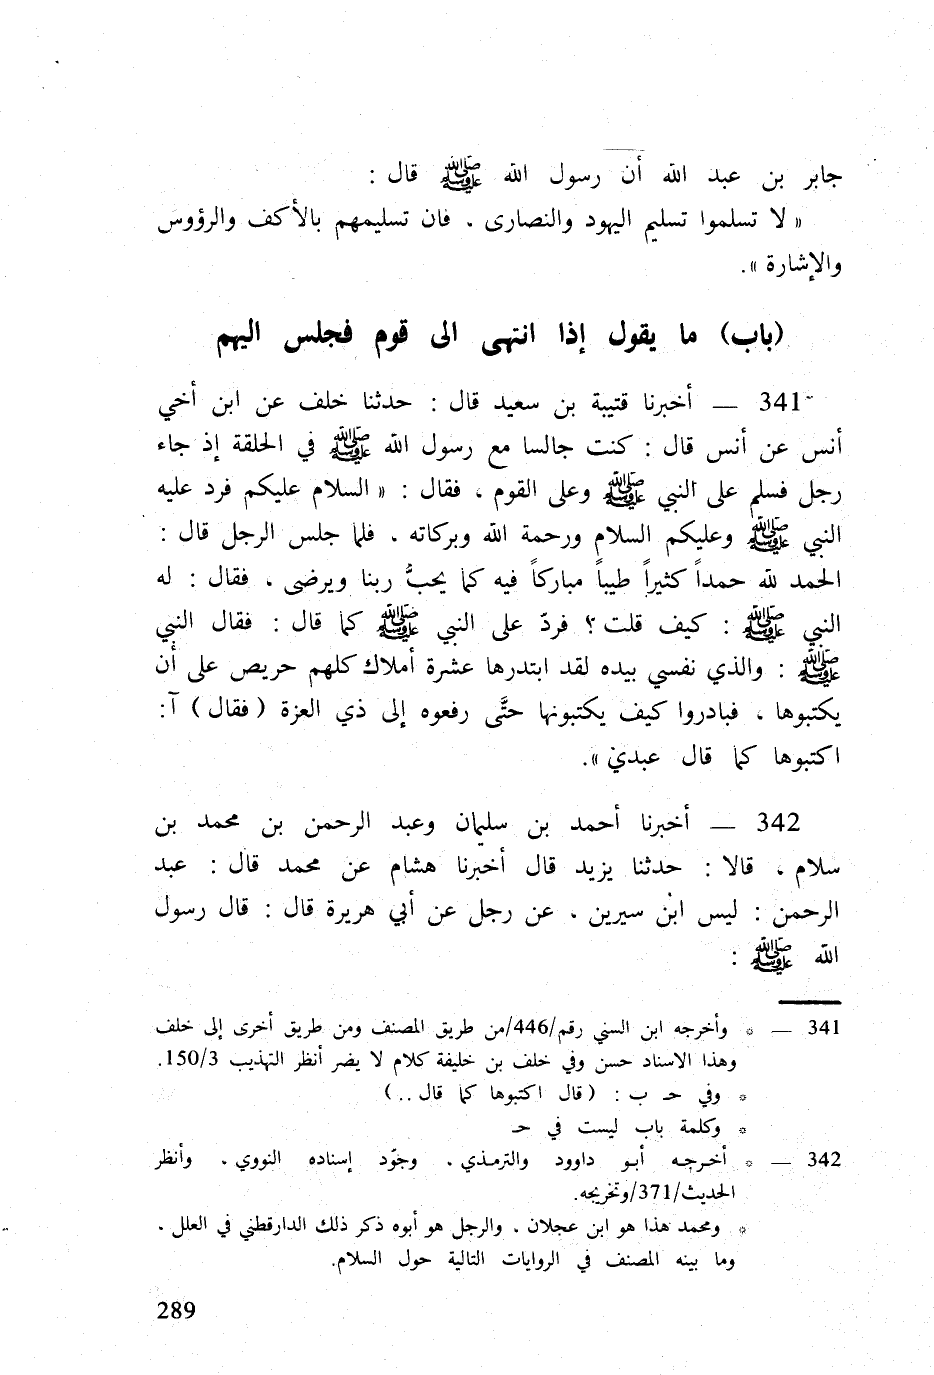 جابر بن عبد الله أن رسول الله ﷺ قال :
« لا تسلموا تسليم اليهود والنصارى . فان تسليمهم بالأكف والرؤوس
والإشارة ».
(باب) ما يقول إذا انتهى الى قوم فجلس اليهم
341 — أخبرنا قتيبة بن سعيد قال : حدثنا خلف عن ابن أخي
أنس عن أنس قال : كنت جالسا مع رسول الله ﷺ في الحلقة إذ جاء
رجل فسلم على النبي ﷺ وعلى القوم ، فقال : « السلام عليكم فرد عليه
النبي ﷺ وعليكم السلام ورحمة الله وبركاته . فلما جلس الرجل قال :
الحمد لله حمداً كثيراً طيباً مباركاً فيه كما يحبُّ ربنا ويرضى . فقال : له
النبي ﷺ : كيف قلت ؟ فردّ على النبي ﷺ كما قال : فقال النبي
ﷺ : والذي نفسي بيده لقد ابتدرها عشرة أملاك كلهم حريص على أن
يكتبوها ، فبادروا كيف يكتبونها حتَّى رفعوه إلى ذي العزة ( فقال ) آ:
اكتبوها كما قال عبدي ».
342 — أخبرنا أحمد بن سليمان وعبد الرحمن بن محمد بن
سلام ، قالا : حدثنا يزيد قال أخبرنا هشام عن محمد قال : عبد
الرحمن : ليس ابن سيرين . عن رجل عن أبي هريرة قال : قال رسول
الله ﷺ :
341 — * وأخرجه ابن السني رقم/446/من طريق المصنف ومن طريق أخرى إلى خلف
وهذا الاسناد حسن وفي خلف بن خليفة كلام لا يضر أنظر التهذيب 150/3.
* وفي حـ ب : ( قال اكتبوها كما قال .. )
* وكلمة باب ليست في حـ
342 — * أخرجه أبو داوود والترمذي . وجوّد إسناده النووي . وأنظر
الحديث/371/وتخريجه.
* ومحمد هذا هو ابن عجلان . والرجل هو أبوه ذكر ذلك الدارقطني في العلل .
وما بينه المصنف في الروايات التالية حول السلام.
289